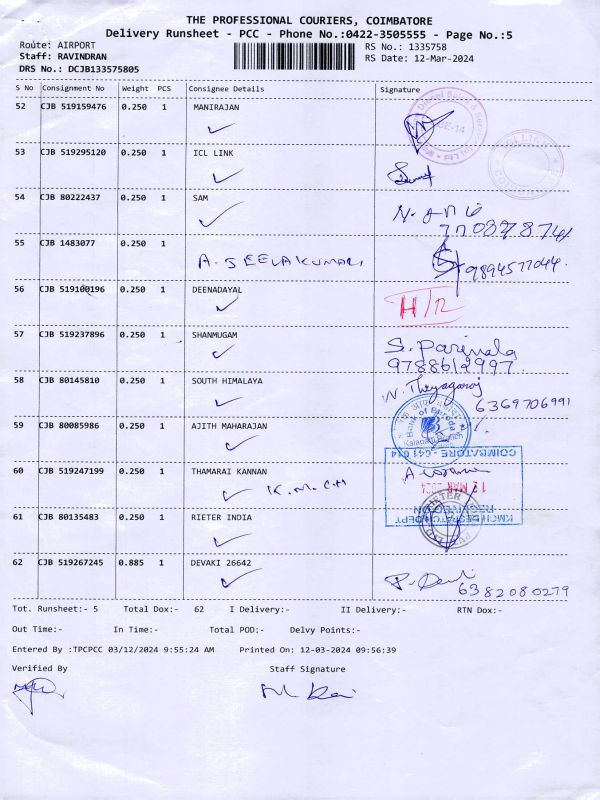 THE PROFESSIONAL COURIERS, COIMBATORE
Delivery Runsheet - PCC - Phone No.:0422-3505555 - Page No.:5
Route: AIRPORT
RS No.: 1335758
Staff: RAVINDRAN
RS Date: 12-Mar-2024
DRS No.: DCJB133575805
S No Consignment No Weight PCS Consignee Details Signature
52 CJB 519159476 0.250 1 MANIRAJAN
53 CJB 519295120 0.250 1 ICL LINK
54 CJB 80222437 0.250 1 SAM
N. ANI
7703278741
55 CJB 1483077 0.250 1
A. SEELAKUMARI
9894577044.
56 CJB 519100196 0.250 1 DEENADAYAL
H/R
57 CJB 519237896 0.250 1 SHANMUGAM
S. Parimala
9788612997
58 CJB 80145810 0.250 1 SOUTH HIMALAYA
N. Thiyagaraj
6369706991
59 CJB 80085986 0.250 1 AJITH MAHARAJAN
Bank of Baroda
Kalapatti Branch
COIMBATORE - 641 014
60 CJB 519247199 0.250 1 THAMARAI KANNAN
K.M.C.H
12 MAR 2024
RECEIVED ON
KMCH DESPATCH DEPT
61 CJB 80135483 0.250 1 RIETER INDIA
62 CJB 519267245 0.885 1 DEVAKI 26642
P. Devi
6382080279
Tot. Runsheet:- 5 Total Dox:- 62 I Delivery:- II Delivery:- RTN Dox:-
Out Time:- In Time:- Total POD:- Delvy Points:-
Entered By :TPCPCC 03/12/2024 9:55:24 AM Printed On: 12-03-2024 09:56:39
Verified By Staff Signature